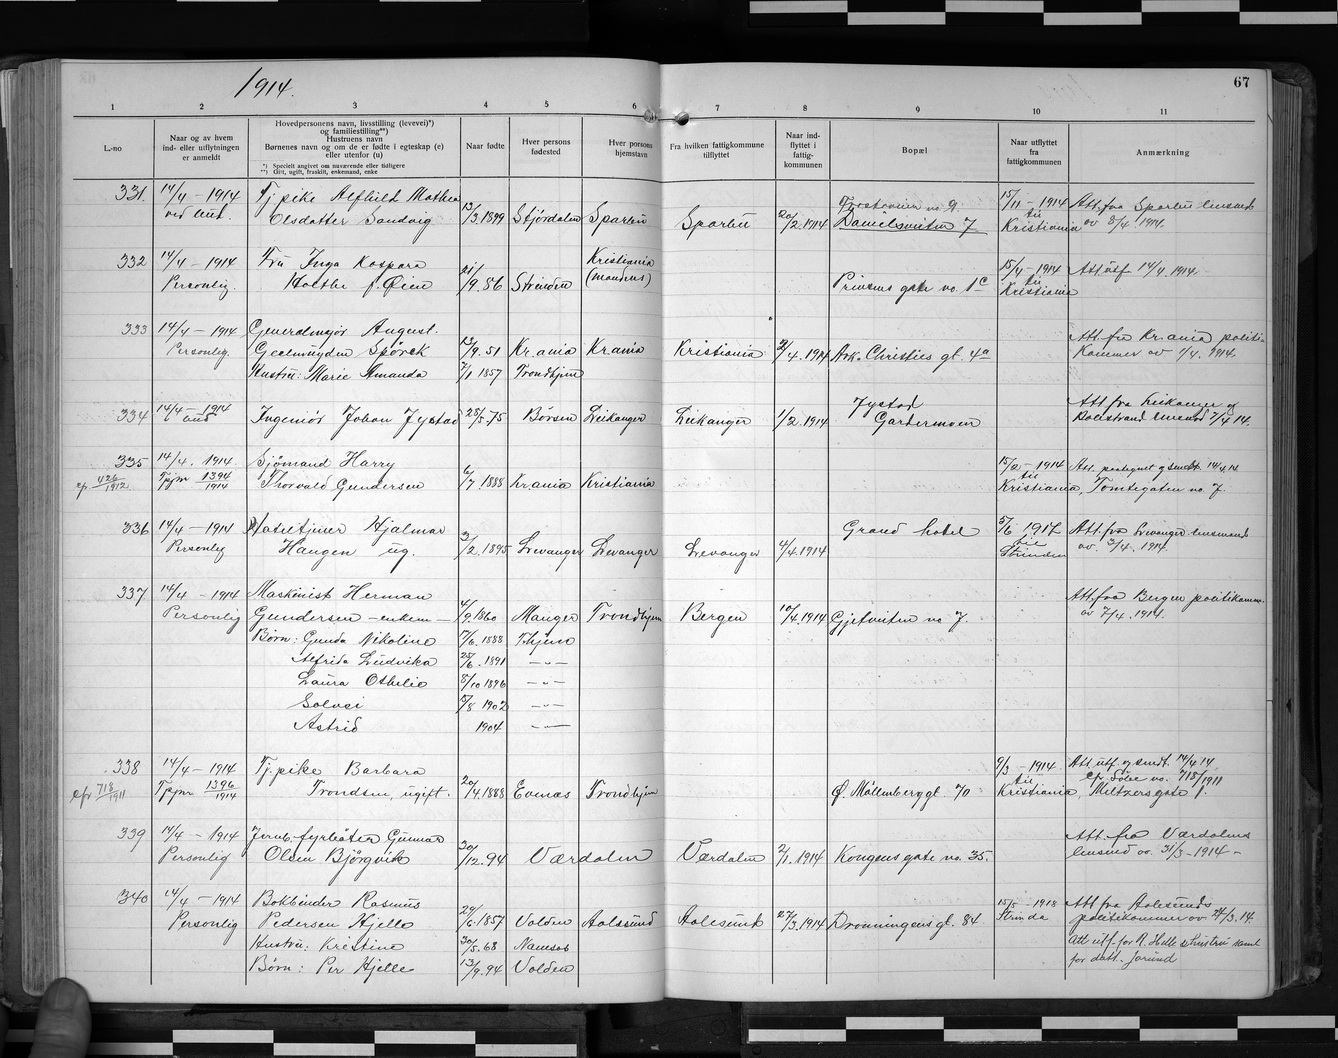 67
1914.
1 2 3 4 5 6 7 8 9 10 11
L.-no
Naar og av hvem ind- eller utflytningen er anmeldt
Hovedpersonens navn, livsstilling (levevei)*) og familiestilling**)
Hustruens navn
Børnenes navn og om de er fødte i egteskap (e) eller utenfor (u)
*) Specielt angivet om nuværende eller tidligere
**) Gift, ugift, fraskilt, enkemand, enke
Naar fødte
Hver persons fødested
Hver persons hjemstavn
Fra hvilken fattigkommune tilflyttet
Naar indflyttet i fattigkommunen
Bopæl
Naar utflyttet fra fattigkommunen
Anmærkning
331 14/4 - 1914 Tj.pike Alfhild Mathea Frostaveien no 9. 15/11 - 1914 Att. fra Sparbu lensmand
ved bud. Olsdatter Sandvig 13/3.1899 Stjørdalen Sparbu Sparbu 20/2.1914 Danielsveiten 7 til Kristiania av 3/4 1914.
332 14/4 - 1914 Fru Inga Kaspara Kristiania 15/4 - 1914 Att utf 14/4 1914.
Personlig Holthe f. Øien 21/9.86 Strinden (mandens) Prinsens gate no. 1c til Kristiania
333 14/4 - 1914 Generalmajor August Att. fra Kr.ania politi-
Personlig Geelmuyden Spørck 13/9.51 Kr.ania Kr.ania Kristiania 2/4.1914 Ark. Christies gt. 4a kammer av 1/4. 1914.
Hustru: Marie Amanda 7/1 1857 Trondhjem
334 14/4 - 1914 Jystad Att fra Leikanger og
bud Ingeniør Johan Jystad 28/5.75 Børsen Leikanger Leikanger 1/2.1914 Gardermoen lensmand 7/4 14.
335 14/4. 1914 Sjømand Harry 15/2 - 1914 Att. paategnet og sendt 14/4 14
cfr. 426/1912 Tpjnr 1394/1914 Thorvald Gundersen 6/7 1888 Kr.ania Kristiania til Kristiania, Tomtegaten no 7.
336 14/4 - 1914 Hoteltjener Hjalmar Grand hotel 5/6 1917 Att. fra Levanger lensmand
Personlig Haugen ug. 3/2.1895 Levanger Levanger Levanger 4/4.1914 til Strinden av. 3/4. 1914.
337 14/4 - 1914 Maskinist Herman Att. fra Bergen politikamm.
Personlig Gundersen - enkem - 4/9.1860 Manger Trondhjem Bergen 10/4.1914 Gjetveiten no 7. av 7/4. 1914.
Børn: Gunda Nikoline 7/6.1888 Thjem
Alfrida Ludvika 25/6.1891 - " -
Laura Othelie 8/10 1896 - " -
Solvei 5/8 1902 - " -
Astrid 1904 - " -
338 14/4 - 1914 Tj.pike Barbara 9/3 - 1914 Att. utf. og sendt. 14/4 14
cfr 718/1911 Tpjnr 1396/1914 Trondsen, ugift. 20/4.1888 Evenæs Trondhjem Ø. Møllenberggt. 70 til Kristiania, cfr. no. 718/1911 Meltzersgate 1.
339 14/4 - 1914 Jernb.fyrbøter Gunnar Att. fra Værdalens
Personlig Olsen Bjørgvik 30/12.94 Værdalen Værdalen 2/1.1914 Kongens gate no. 35. lensmd av. 31/3 - 1914 -
340 14/4 - 1914 Bokbinder Rasmus 15/5 - 1918 Att fra Aalesunds
Personlig Pedersen Hjelle 29/6.1857 Volden Aalesund Aalesund 27/3.1914 Dronningensgt. 84. Strinda politikammer av 24/3.14.
Hustru: Kristine 30/5.68 Namsos Att utf. for R. Helle & hustru samt
Børn: Per Hjelle 13/9.94 Volden for datt. Jorund